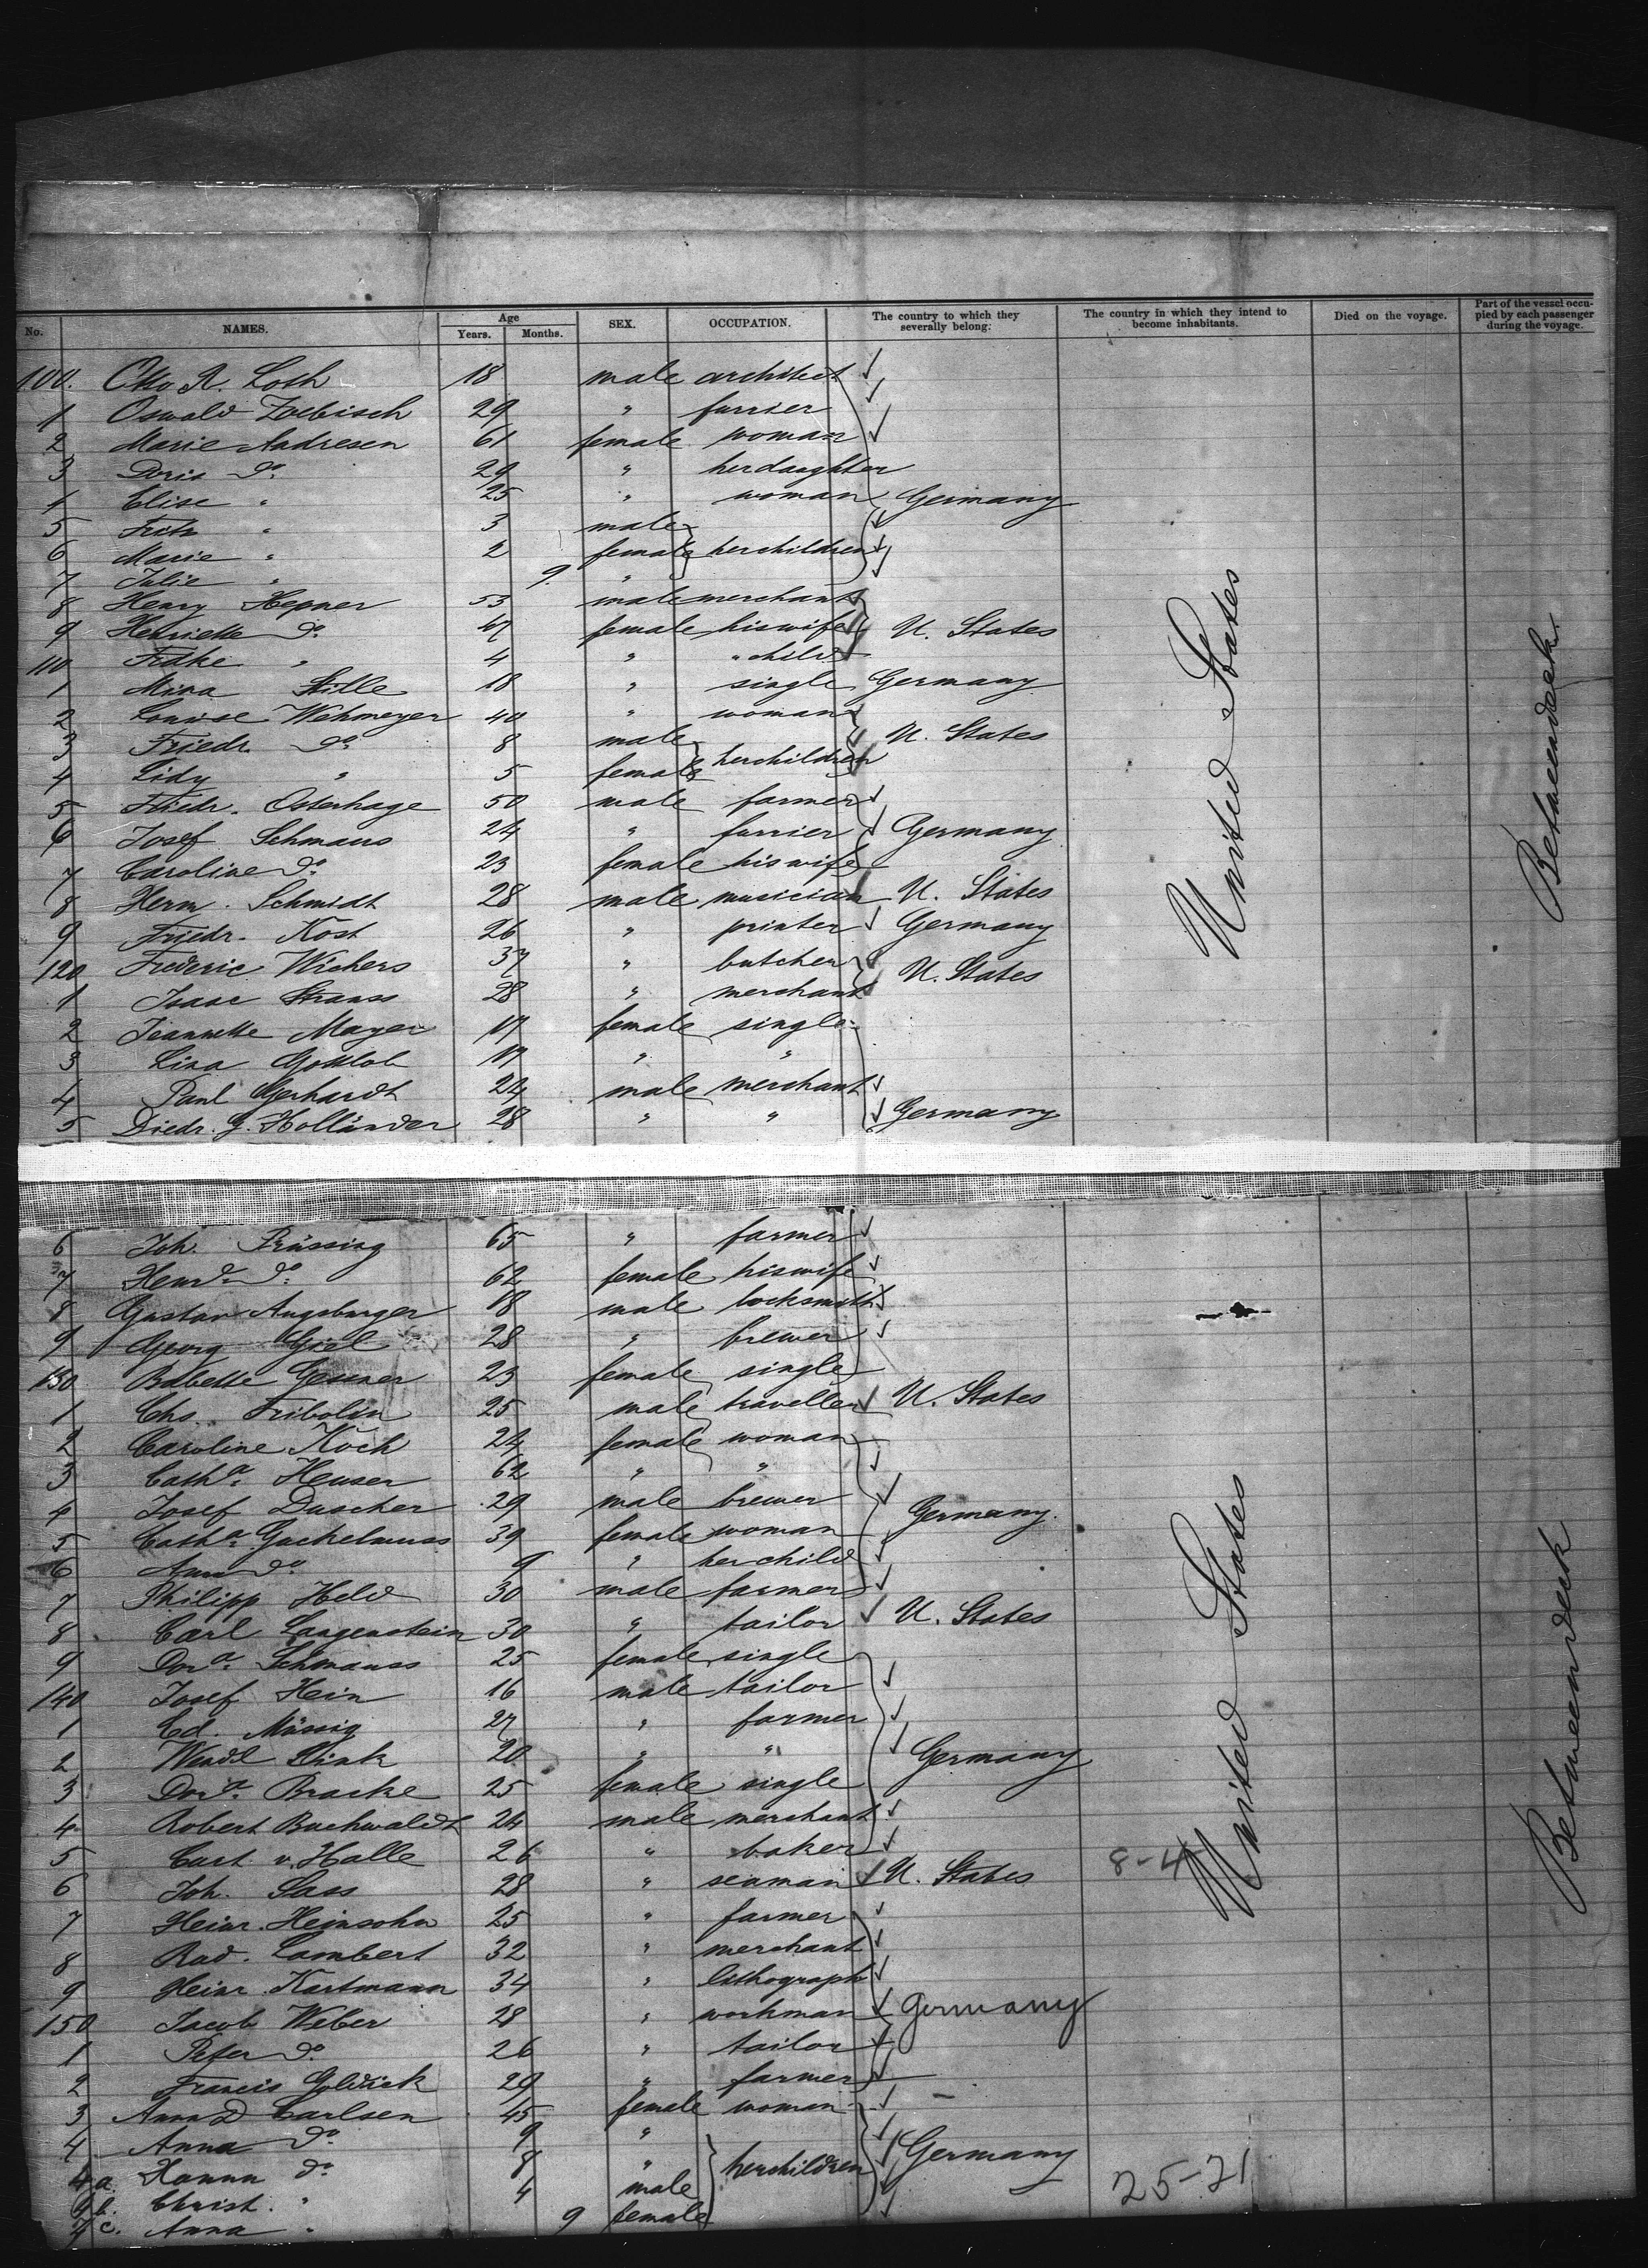 No. NAMES. Age Years. Months. SEX. OCCUPATION. The country to which they severally belong: The country in which they intend to become inhabitants. Died on the voyage. Part of the vessel occupied by each passenger during the voyage.
100. Otto R. Loth 18 male architect
1 Oswald Zoebisch 29 " furrier
2 Marie Andresen 61 female woman
3 Doris do. 29 " her daughter
4 Elise " 25 " woman Germany
5 Fritz " 3 male
6 Marie " 2 female her children
7 Julie " 9 "
8 Henry Hepner 53 male merchant
9 Henriette do. 47 female his wife U. States
110 Fridke " 4 " " child
1 Mina Stille 18 " single Germany
2 Louise Wehmeyer 40 " woman
3 Friedr. do. 8 male U. States
4 Lidy " 5 female her children
5 Friedr. Osterhage 50 male farmer
6 Josef Schmaus 24 " furrier Germany
7 Caroline do. 23 female his wife
8 Herm. Schmidt 28 male musician U. States
9 Friedr. Kost 26 " printer Germany
120 Frederic Wichers 37 " butcher U. States
1 Isaac Strauss 28 " merchant
2 Jeannette Mayer 17 female single
3 Lina Gottlob 17 " "
4 Paul Gerhardt 24 male merchant
5 Diedr. G. Holländer 28 " " Germany
United States
Betweendeck
6 Joh. Prüssing 65 " farmer
7 Henr. do. 62 female his wife
8 Gustav Augsburger 18 male locksmith
9 Georg Giel 28 " brewer
130 Babette Gessner 23 female single
1 Chs. Fribolin 25 male traveller U. States
2 Caroline Koch 24 female woman
3 Catha. Heuser 62 " "
4 Josef Duscher 29 male brewer Germany.
5 Catha. Gackelmuss 39 female woman
6 Anna do. 9 " her child
7 Philipp Held 30 male farmer
8 Carl Langenstein 30 " tailor U. States
9 Dora. Schmauss 25 female single
140 Josef Hein 16 male tailor
1 Ed. Mässig 27 " farmer
2 Wendl Link 20 " " Germany
3 Dora. Bracke 25 female single
4 Robert Buchwaldt 24 male merchant
5 Curt v. Halle 26 " baker
6 Joh. Sass 28 " seaman U. States 8-4
7 Heinr. Heinsohn 25 " farmer
8 Rud. Lambert 32 " merchant
9 Heinr. Kartmann 34 " lithograph
150 Jacob Weber 28 " workman Germany
1 Peter do. 26 " tailor
2 Francis Goldrick 29 " farmer
3 Anna D Carlsen 45 female woman
4 Anna do. 9 "
4 a. Hanna do. 8 " her children Germany
4 b. Christ. " 4 male 25-71
4 c. Anna " 9 female
United States
Betweendeck